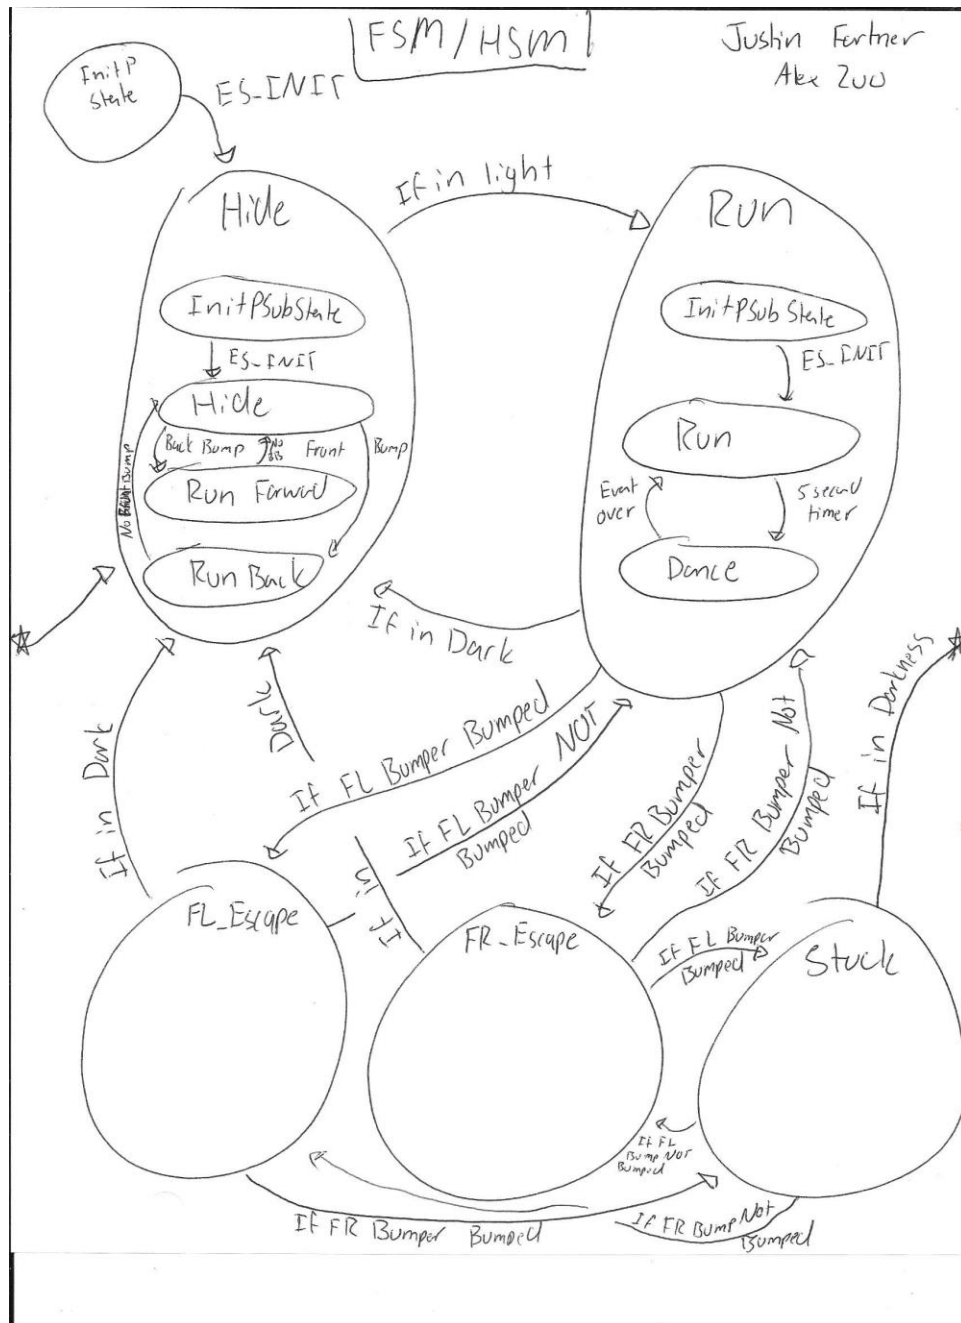 FSM/HSM
Justin Fortner
Alex Zuo
InitP
State
ES_INIT
Hide
If in light
Run
InitPSubState
ES_INIT
Hide
Back Bump
No
BB
Front
Bump
Run Forward
Run Back
InitPSub State
ES_INIT
Run
Event
over
5 second
timer
Dance
If in Dark
If in Dark
Dark
If in
If FL Bumper Bumped
If FL Bumper NOT
Bumped
If FR Bumper
Bumped
If FR Bumper Not
Bumped
If in Darkness
FL_Escape
FR_Escape
If FL Bumper
Bumped
Stuck
If FL
Bump NOT
Bumped
If FR Bumper Bumped
If FR Bump Not
Bumped